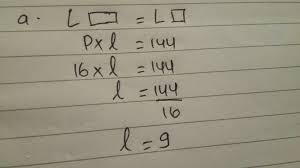 a. L ▭ = L □
P x l = 144
16 x l = 144
l = 144
16
l = 9